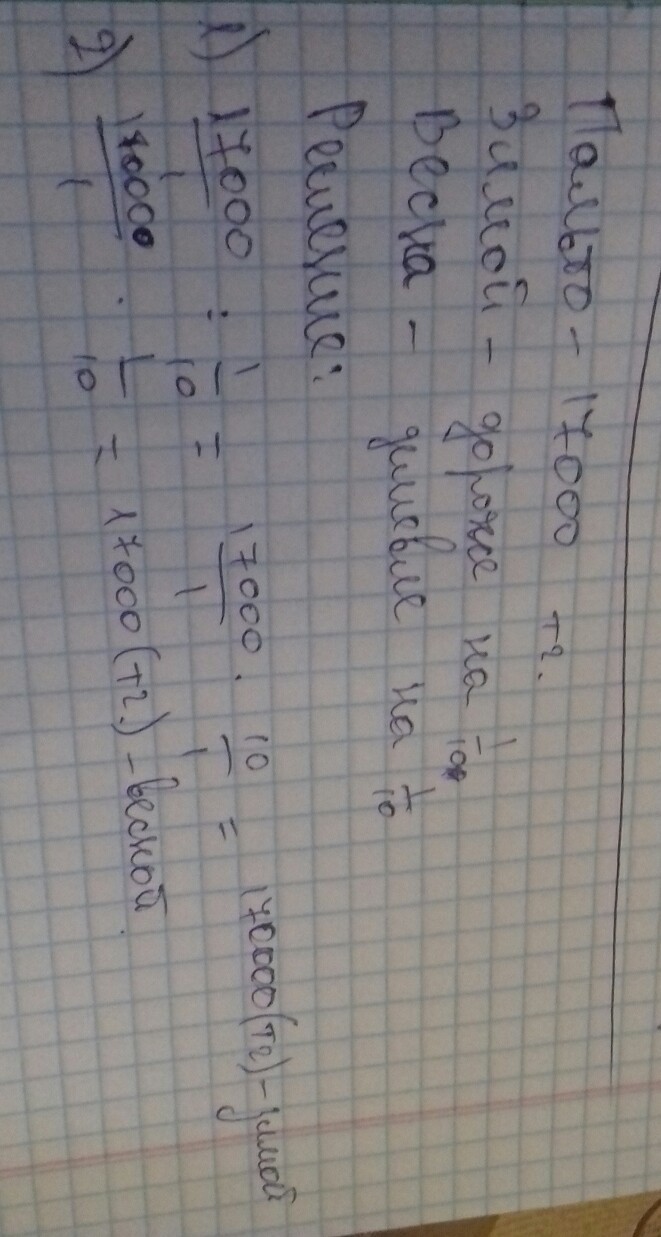 Пальто - 17000 тг.
Зимой - дороже на 1/10
Весна - дешевле на 1/10
Решение:
1) 17000/1 : 1/10 = 17000/1 · 10/1 = 170000(тг) - зимой
2) 170000/1 · 1/10 = 17000(тг.) - весной